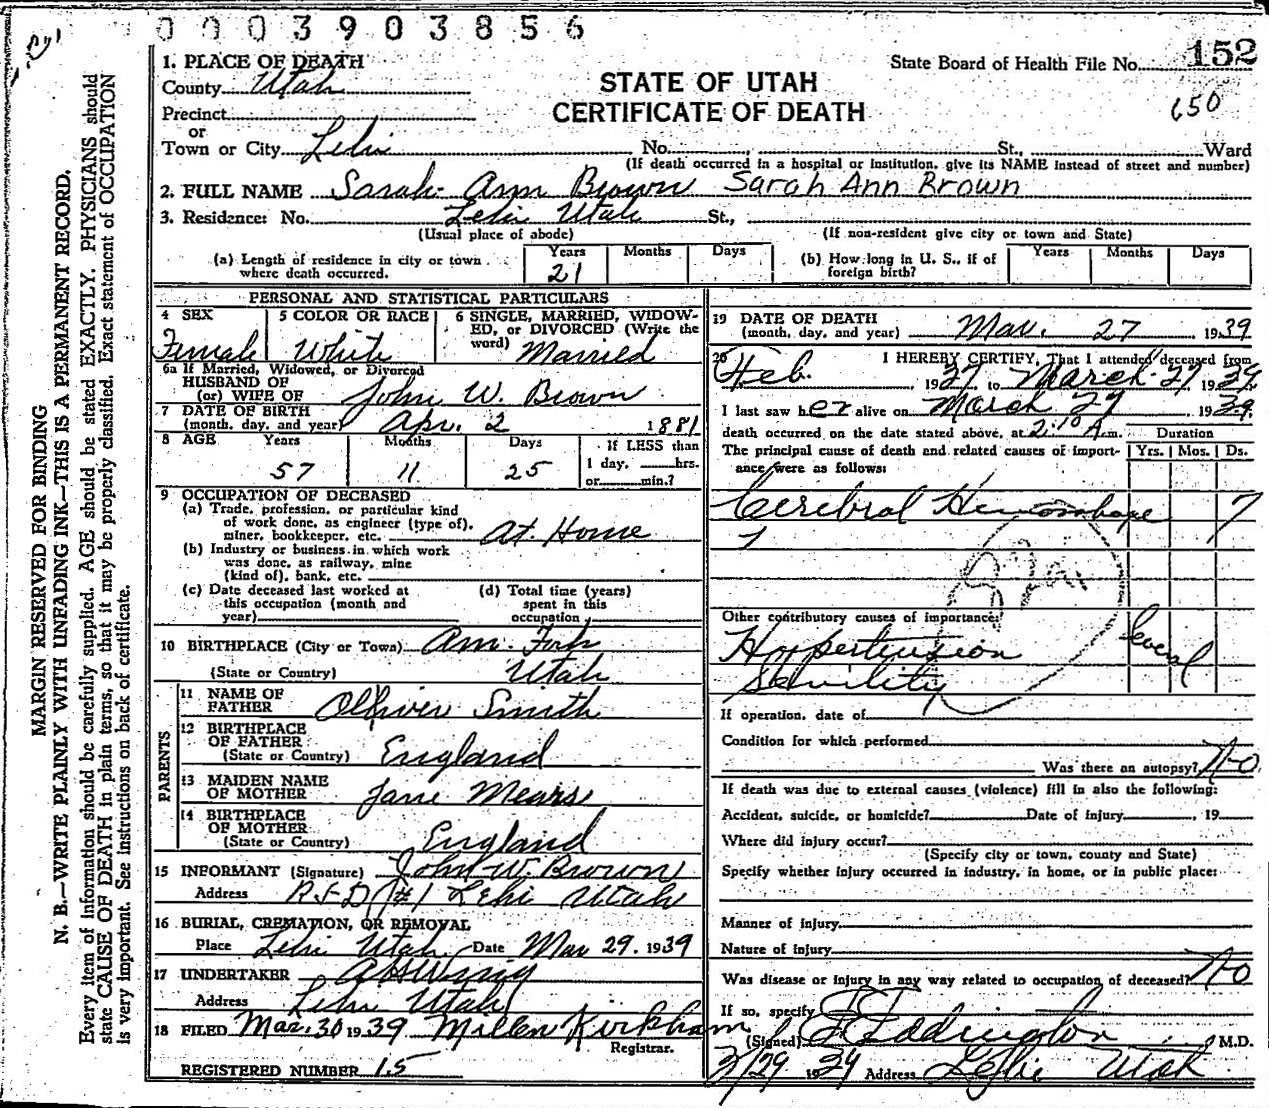 0003903856
152
1. PLACE OF DEATH
State Board of Health File No.
County Utah
STATE OF UTAH
650
Precinct
CERTIFICATE OF DEATH
or
Town or City Lehi No. St., Ward
(If death occurred in a hospital or institution, give its NAME instead of street and number)
2. FULL NAME Sarah Ann Brown Sarah Ann Brown
3. Residence: No. Lehi Utah St.,
(Usual place of abode) (If non-resident give city or town and State)
(a) Length of residence in city or town where death occurred. Years 21 Months Days
(b) How long in U. S., if of foreign birth? Years Months Days
PERSONAL AND STATISTICAL PARTICULARS
4 SEX Female
5 COLOR OR RACE White
6 SINGLE, MARRIED, WIDOW-
ED, or DIVORCED (Write the
word) Married
6a If Married, Widowed, or Divorced
HUSBAND OF
(or) WIFE OF John W. Brown
7 DATE OF BIRTH
(month, day, and year) Apr. 2 1881
8 AGE Years 57 Months 11 Days 25
If LESS than
1 day, hrs.
or min.?
9 OCCUPATION OF DECEASED
(a) Trade, profession, or particular kind
of work done, as engineer (type of),
miner, bookkeeper, etc. At Home
(b) Industry or business in which work
was done, as railway, mine
(kind of), bank, etc.
(c) Date deceased last worked at
this occupation (month and
year)
(d) Total time (years)
spent in this
occupation
10 BIRTHPLACE (City or Town) Am. Fork
(State or Country) Utah
PARENTS
11 NAME OF
FATHER Olliver Smith
12 BIRTHPLACE
OF FATHER
(State or Country) England
13 MAIDEN NAME
OF MOTHER Jane Mears
14 BIRTHPLACE
OF MOTHER
(State or Country) England
15 INFORMANT (Signature) John W. Brown
Address R.F.D. #1 Lehi Utah
16 BURIAL, CREMATION, OR REMOVAL
Place Lehi Utah Date Mar 29. 1939
17 UNDERTAKER
Address Lehi Utah
18 FILED Mar. 30 1939 Millen Kirkham
Registrar.
REGISTERED NUMBER 15
19 DATE OF DEATH
(month, day, and year) Mar. 27 1939
20 I HEREBY CERTIFY, That I attended deceased from
Feb. 1937 to March 27 1939
I last saw her alive on March 27 1939
death occurred on the date stated above, at 2:10 A.m. Duration
The principal cause of death and related causes of import-
ance were as follows: Yrs. Mos. Ds.
Cerebral Hemorrhage 7
Other contributory causes of importance:
Hypertension Several
Senility
If operation, date of
Condition for which performed
Was there an autopsy? No
If death was due to external causes (violence) fill in also the following:
Accident, suicide, or homicide? Date of injury , 19
Where did injury occur?
(Specify city or town, county and State)
Specify whether injury occurred in industry, in home, or in public place:
Manner of injury
Nature of injury
Was disease or injury in any way related to occupation of deceased? No
If so, specify
(Signed) Eddington M.D.
3/29 1939 Address Lehi Utah
MARGIN RESERVED FOR BINDING
N. B.—WRITE PLAINLY WITH UNFADING INK—THIS IS A PERMANENT RECORD.
Every item of information should be carefully supplied. AGE should be stated EXACTLY. PHYSICIANS should
state CAUSE OF DEATH in plain terms, so that it may be properly classified. Exact statement of OCCUPATION
is very important. See instructions on back of certificate.